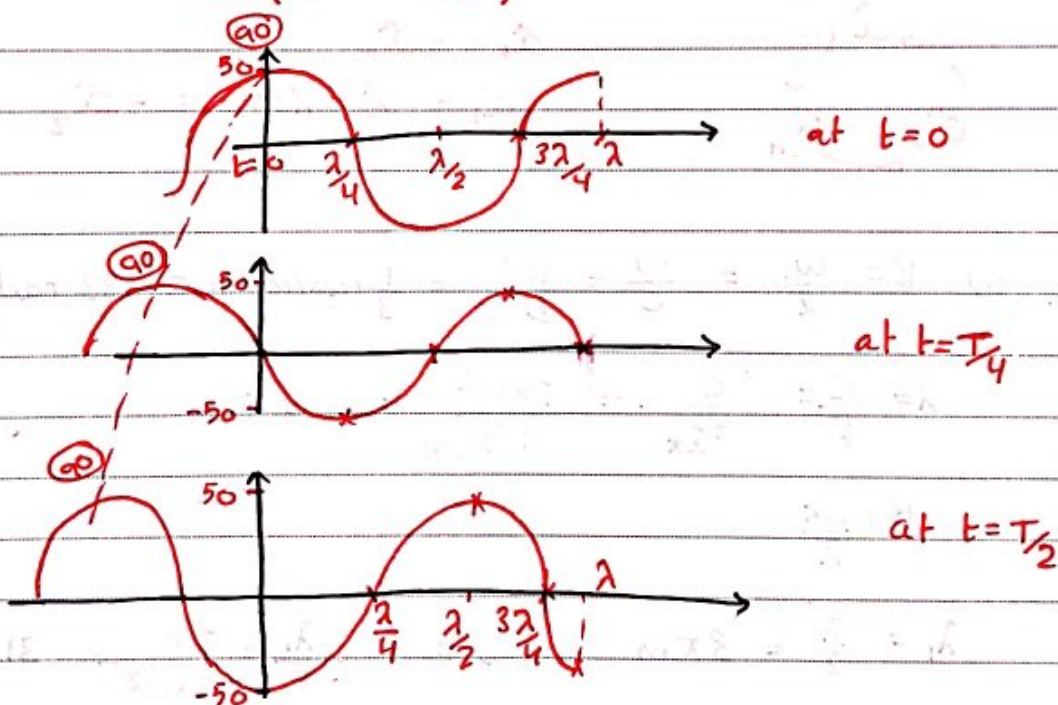 90
50
t=0
λ/4
λ/2
3λ/4
λ
at t=0
90
50
-50
at t=T/4
90
50
-50
λ/4
λ/2
3λ/4
λ
at t=T/2